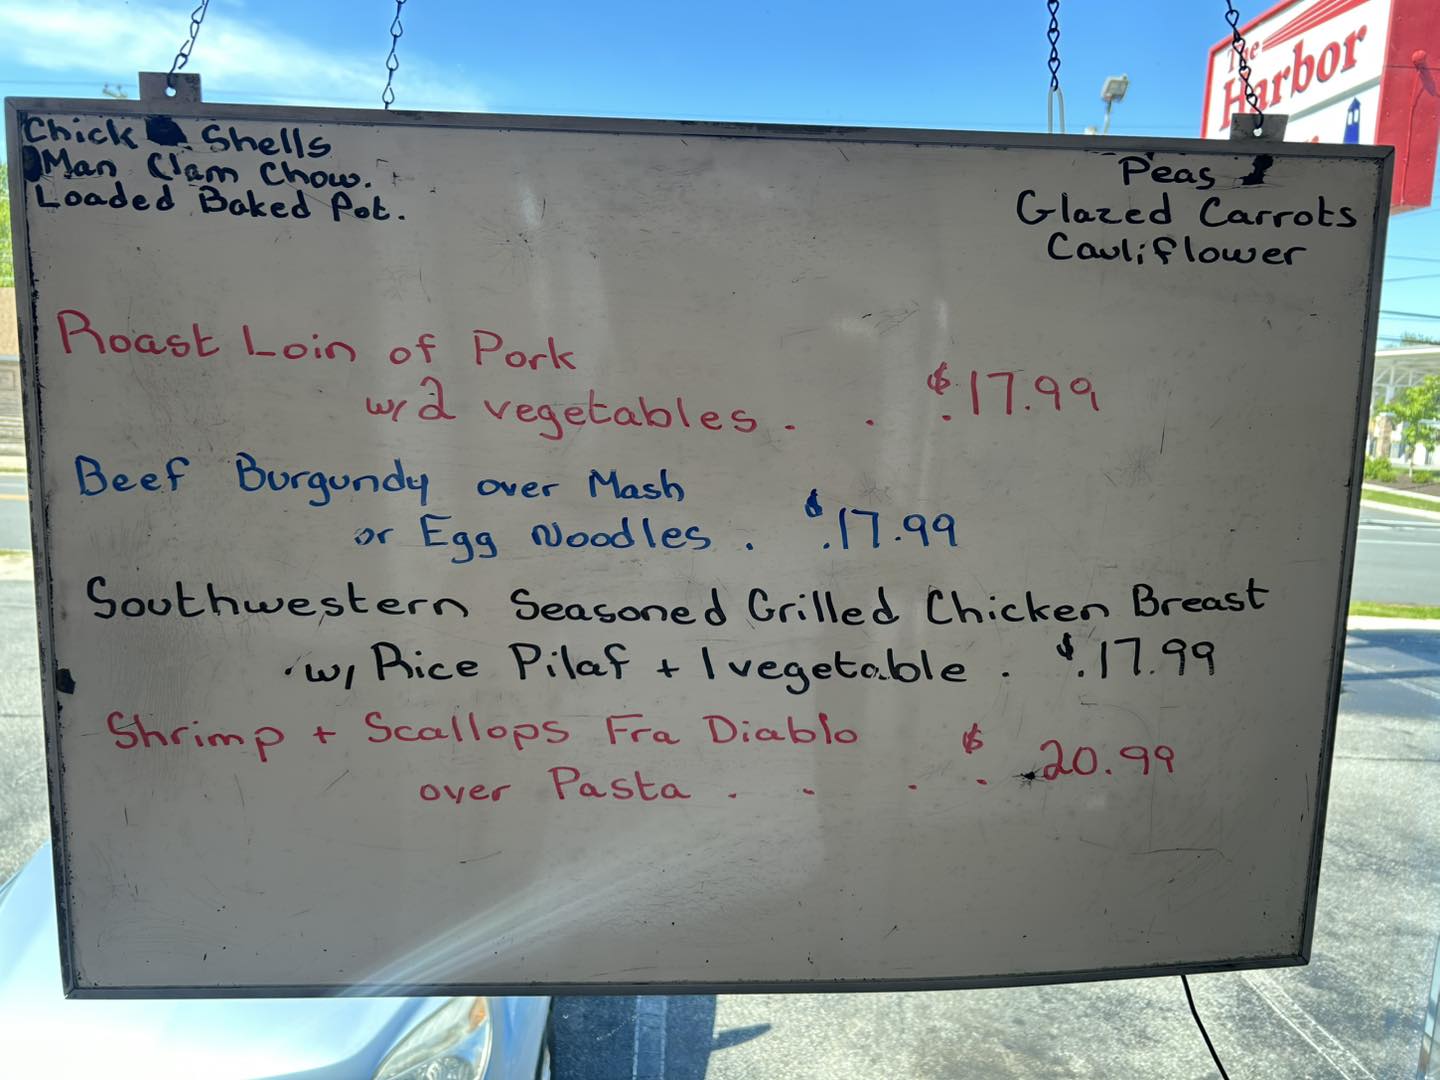 The
Harbor
Chick Shells
Man Clam Chow.
Loaded Baked Pot.
Peas
Glazed Carrots
Cauliflower
Roast Loin of Pork
w/ 2 vegetables . . $.17.99
Beef Burgundy over Mash
or Egg Noodles . $.17.99
Southwestern Seasoned Grilled Chicken Breast
w/ Rice Pilaf + 1 vegetable . $.17.99
Shrimp + Scallops Fra Diablo
over Pasta . . . $. 20.99